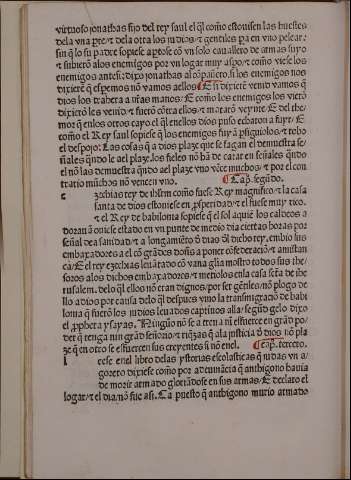 virtuoso jonathas fijo del rey saul el q̃l com̃o estouiesen las huestes
dela vna p̃te ⁊ dela otra los iudios ⁊ gentiles pa en vno pelear:
sin q̃ lo su padre sopiese aptose cõ vn solo cauallero de armas suyo
⁊ subierõ alos enemigos por vn logar muy asp̃o/ ⁊ com̃o viese los
enemigos antesi: dixo jonathas al cõpañero. si los enemigos nos
dixierẽ q̃ espemos nõ vamos a ellos/ E si dixierẽ venid vamos q̃
dios los trahera a ñras manos/ E com̃o los enemigos los vierõ
dixierõ les venir/ ⁊ fuerõ cõtra ellos/ ⁊ matarõ veynte. E del the/
mor q̃ enlos otros cayo el q̃l enellos dios puso echaron a fuyr/ E
com̃o el Rey saul sopiese q̃ los enemigos fuyã p̃siguiolos/ ⁊ robo
el despojo: Las cosas q̃ a dios plaze que se fagan el demuestra se/
ñales q̃ndo le ael plaze. los fieles nõ hã de catar en señales q̃ndo
el nõ las demuestra q̃ndo ael plaze vno vẽce muchos/ ⁊ por el con
tratio muchos nõ vencen vno. Cap̃. segũdo.
e zechias rey de ihrl̃m com̃o fuese Rey magnifico ⁊ la casa
santa de dios estouiese en p̃speridad/ ⁊ el fuese muy rico.
⁊ el Rey de babilonia sopiese q̃ el sol aquiẽ los caldeos a
dorauã ouiese estado en vn punte de medio dia ciertas horas por
señal dea sanidad/ ⁊ a longamiẽto d̃ dias d̃l dicho rey. embio sus
embaxadores a el cõ grãdes doñs a poner cõfederaciõ ⁊ amistan
ça/ E el rey ezechias leuãtado cõ vana gl̃ia mostro todos sus the/
soros alos dichos embaxadores/ ⁊ metiolos enla casa sc̃tã de ihe
rusalem. delo q̃l ellos nõ eran dignos/ por ser gẽtiles/ nõ plogo de
llo a dios por causa delo q̃l despues vino la transmigraciõ de babi
lonia q̃ fuerõ los iudios leuados captiuos alla/ segũd gelo dixo
el p̃pheta ysayas. Ningũo nõ se atrena nĩ esfuerce en grãd po/
der q̃ tenga nin grãd señorio/ ⁊ riq̃zas q̃ ala justicia d̃ dios nõ pla
ze q̃ en otro se esfuercen sus creyentes si nõ enel. Cap̃. tercero.
l eese enel libro delas ystorias escolasticas q̃ iudas vn a/
goreto dixiese com̃o por adeuinãcia q̃ anthigono hauia
de morir armado gloriãdose en sus armas/ E declaro el
logar/ ⁊ el dia/ nõ fue asi. Ca puesto q̃ anthigono murio armado